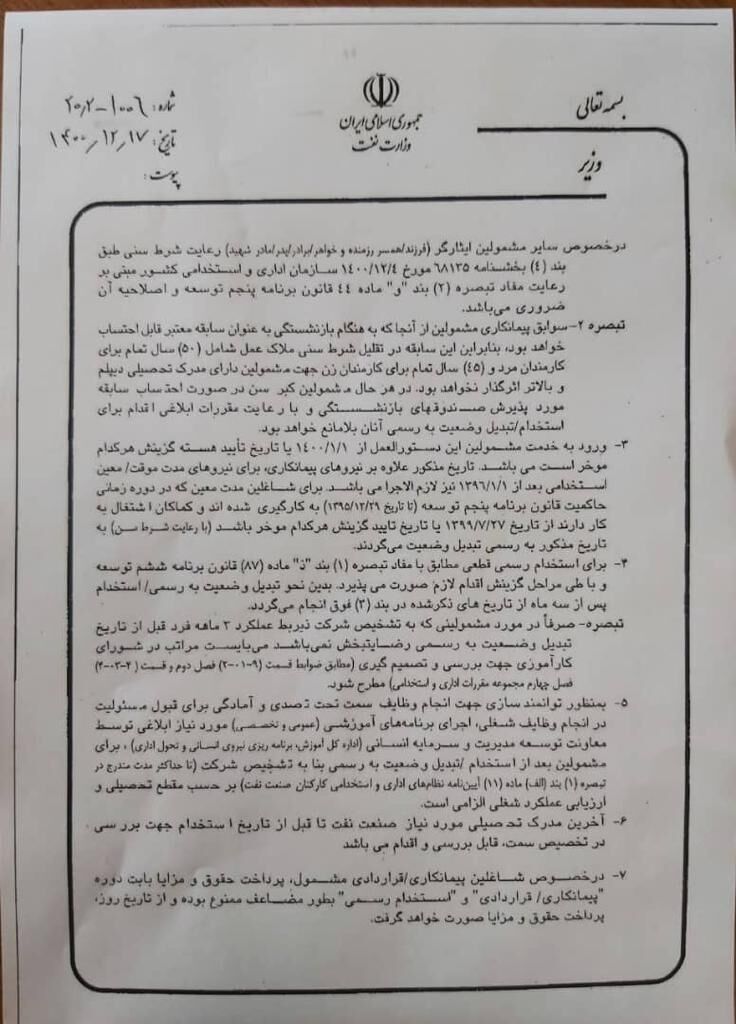 بسمه تعالی
جمهوری اسلامی ایران
وزارت نفت
وزیر
شماره: ۱۰۰۶-۲۰٫۲
تاریخ: ۱۴۰۰٫۱۲٫۱۷
پیوست:
درخصوص سایر مشمولین ایثارگر (فرزند/همسر رزمنده و خواهر/برادر/پدر/مادر شهید) رعایت شرط سنی طبق
بند (۴) بخشنامه ۶۸۱۳۵ مورخ ۱۴۰۰/۱۲/۴ سازمان اداری و استخدامی کشور مبنی بر
رعایت مفاد تبصره (۲) بند "و" ماده ۴۴ قانون برنامه پنجم توسعه و اصلاحیه آن
ضروری می‌باشد.
تبصره ۲-سوابق پیمانکاری مشمولین از آنجا که به هنگام بازنشستگی به عنوان سابقه معتبر قابل احتساب
خواهد بود، بنابراین این سابقه در تقلیل شرط سنی ملاک عمل شامل (۵۰) سال تمام برای
کارمندان مرد و (۴۵) سال تمام برای کارمندان زن جهت مشمولین دارای مدرک تحصیلی دیپلم
و بالاتر اثرگذار نخواهد بود. در هر حال مشمولین کبر سن در صورت احتساب سابقه
مورد پذیرش صندوقهای بازنشستگی و با رعایت مقررات ابلاغی اقدام برای
استخدام/تبدیل وضعیت به رسمی آنان بلامانع خواهد بود.
۳- ورود به خدمت مشمولین این دستورالعمل از ۱۴۰۰/۱/۱ یا تاریخ تأیید هسته گزینش هرکدام
موخر است می باشد. تاریخ مذکور علاوه بر نیروهای پیمانکاری، برای نیروهای مدت موقت/ معین
استخدامی بعد از ۱۳۹۶/۱/۱ نیز لازم الاجرا می باشد. برای شاغلین مدت معین که در دوره زمانی
حاکمیت قانون برنامه پنجم توسعه (تا تاریخ ۱۳۹۵/۱۲/۲۹) به کارگیری شده اند و کماکان اشتغال به
کار دارند از تاریخ ۱۳۹۹/۷/۲۷ یا تاریخ تایید گزینش هرکدام موخر باشد (با رعایت شرط سن) به
تاریخ مذکور به رسمی تبدیل وضعیت می‌گردند.
۴- برای استخدام رسمی قطعی مطابق با مفاد تبصره (۱) بند "ذ" ماده (۸۷) قانون برنامه ششم توسعه
و با طی مراحل گزینش اقدام لازم صورت می پذیرد. بدین نحو تبدیل وضعیت به رسمی/ استخدام
پس از سه ماه از تاریخ های ذکرشده در بند (۳) فوق انجام می‌گردد.
تبصره- صرفاً در مورد مشمولینی که به تشخیص شرکت ذیربط عملکرد ۳ ماهه فرد قبل از تاریخ
تبدیل وضعیت به رسمی رضایتبخش نمی‌باشد می‌بایست مراتب در شورای
کارآموزی جهت بررسی و تصمیم گیری (مطابق ضوابط قسمت (۹-۰۱-۲) فصل دوم و قسمت (۲-۰۳-۴)
فصل چهارم مجموعه مقررات اداری و استخدامی) مطرح شود.
۵- بمنظور توانمند سازی جهت انجام وظایف سمت تحت تصدی و آمادگی برای قبول مسئولیت
در انجام وظایف شغلی، اجرای برنامه‌های آموزشی (عمومی و تخصصی) مورد نیاز ابلاغی توسط
معاونت توسعه مدیریت و سرمایه انسانی (اداره کل آموزش، برنامه ریزی نیروی انسانی و تحول اداری) ، برای
مشمولین بعد از استخدام /تبدیل وضعیت به رسمی بنا به تشخیص شرکت (تا حداکثر مدت مندرج در
تبصره (۱) بند (الف) ماده (۱۱) آیین‌نامه نظام‌های اداری و استخدامی کارکنان صنعت نفت) بر حسب مقطع تحصیلی و
ارزیابی عملکرد شغلی الزامی است.
۶- آخرین مدرک تحصیلی مورد نیاز صنعت نفت تا قبل از تاریخ استخدام جهت بررسی
در تخصیص سمت، قابل بررسی و اقدام می باشد
۷- درخصوص شاغلین پیمانکاری/قراردادی مشمول، پرداخت حقوق و مزایا بابت دوره
"پیمانکاری/ قراردادی" و "استخدام رسمی" بطور مضاعف ممنوع بوده و از تاریخ روز،
پرداخت حقوق و مزایا صورت خواهد گرفت.